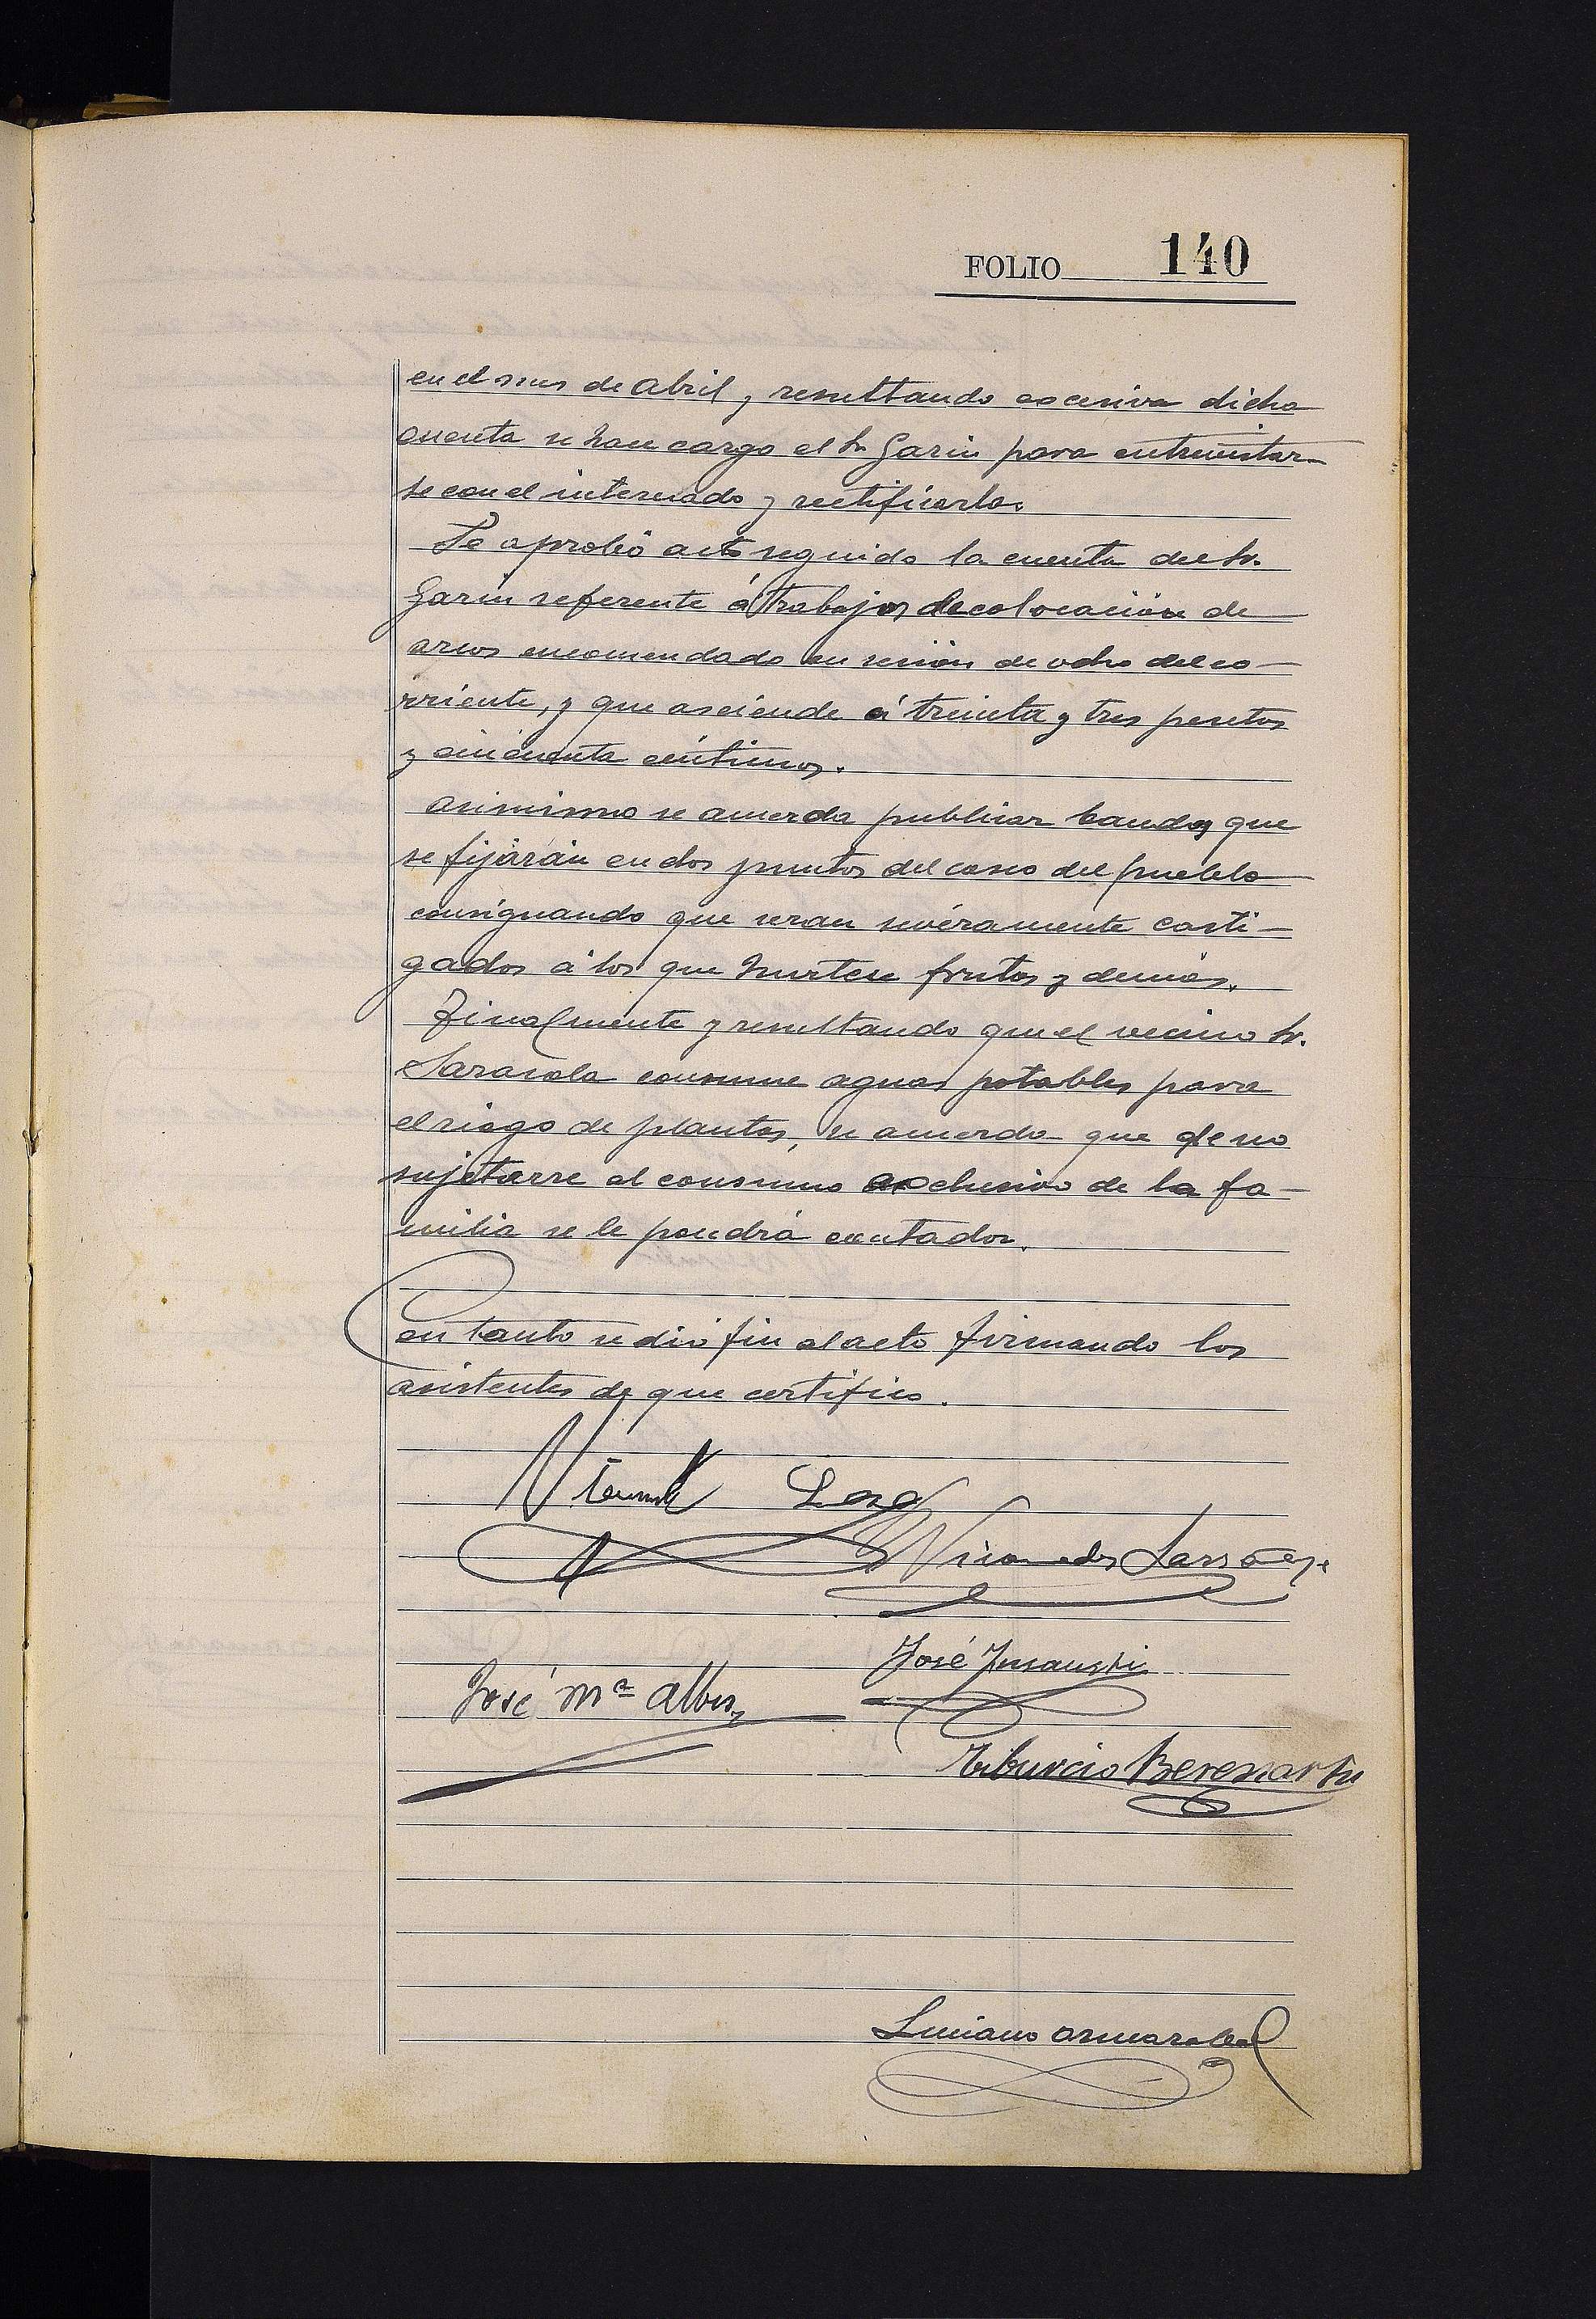 FOLIO 140
en el mes de Abril, y resultando excesiva dicha
cuenta se hace cargo el Sr Garin para entrevistar-
se con el interesado y rectificarla.
Se aprobó acto seguido la cuenta del Sr.
Garin referente á trabajos de colocación de
arcos encomendado en sesión de ocho del co-
rriente, y que asciende á treinta y tres pesetas
y cincuenta céntimos.
Asimismo se acuerda publicar bandos que
se fijarán en dos puntos del casco del pueblo
consignando que seran sevéramente casti-
gados á los que hurten frutas y demás.
Finalmente y resultando que el vecino Sr.
Sarasola consume aguas potables para
el riego de plantas, se acuerda que de no
sujetarse al consumo exclusivo de la fa-
milia se le pondrá contador.
En tanto se dió fin al acto firmando los
asistentes de que certifico.
Vicente Lasa
Nicomedes
José Insausti
José Mª Albis
Tiburcio Berasartu
Luciano